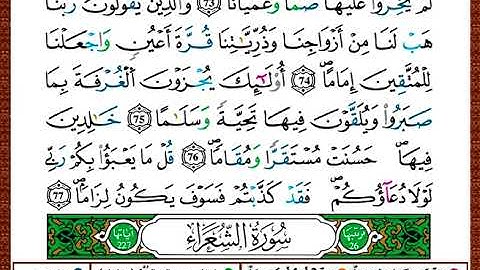 لَمْ يَخِرُّوا۟ عَلَيْهَا صُمًّا وَعُمْيَانًا ٧٣ وَٱلَّذِينَ يَقُولُونَ رَبَّنَا
هَبْ لَنَا مِنْ أَزْوَٰجِنَا وَذُرِّيَّـٰتِنَا قُرَّةَ أَعْيُنٍ وَٱجْعَلْنَا
لِلْمُتَّقِينَ إِمَامًا ٧٤ أُو۟لَـٰٓئِكَ يُجْزَوْنَ ٱلْغُرْفَةَ بِمَا
صَبَرُوا۟ وَيُلَقَّوْنَ فِيهَا تَحِيَّةً وَسَلَـٰمًا ٧٥ خَـٰلِدِينَ
فِيهَا ۚ حَسُنَتْ مُسْتَقَرًّا وَمُقَامًا ٧٦ قُلْ مَا يَعْبَؤُا۟ بِكُمْ رَبِّى
لَوْلَا دُعَآؤُكُمْ ۖ فَقَدْ كَذَّبْتُمْ فَسَوْفَ يَكُونُ لِزَامًا ٧٧
ترتيبها 26 سُورَةُ الشُّعَرَاءِ آياتها 227